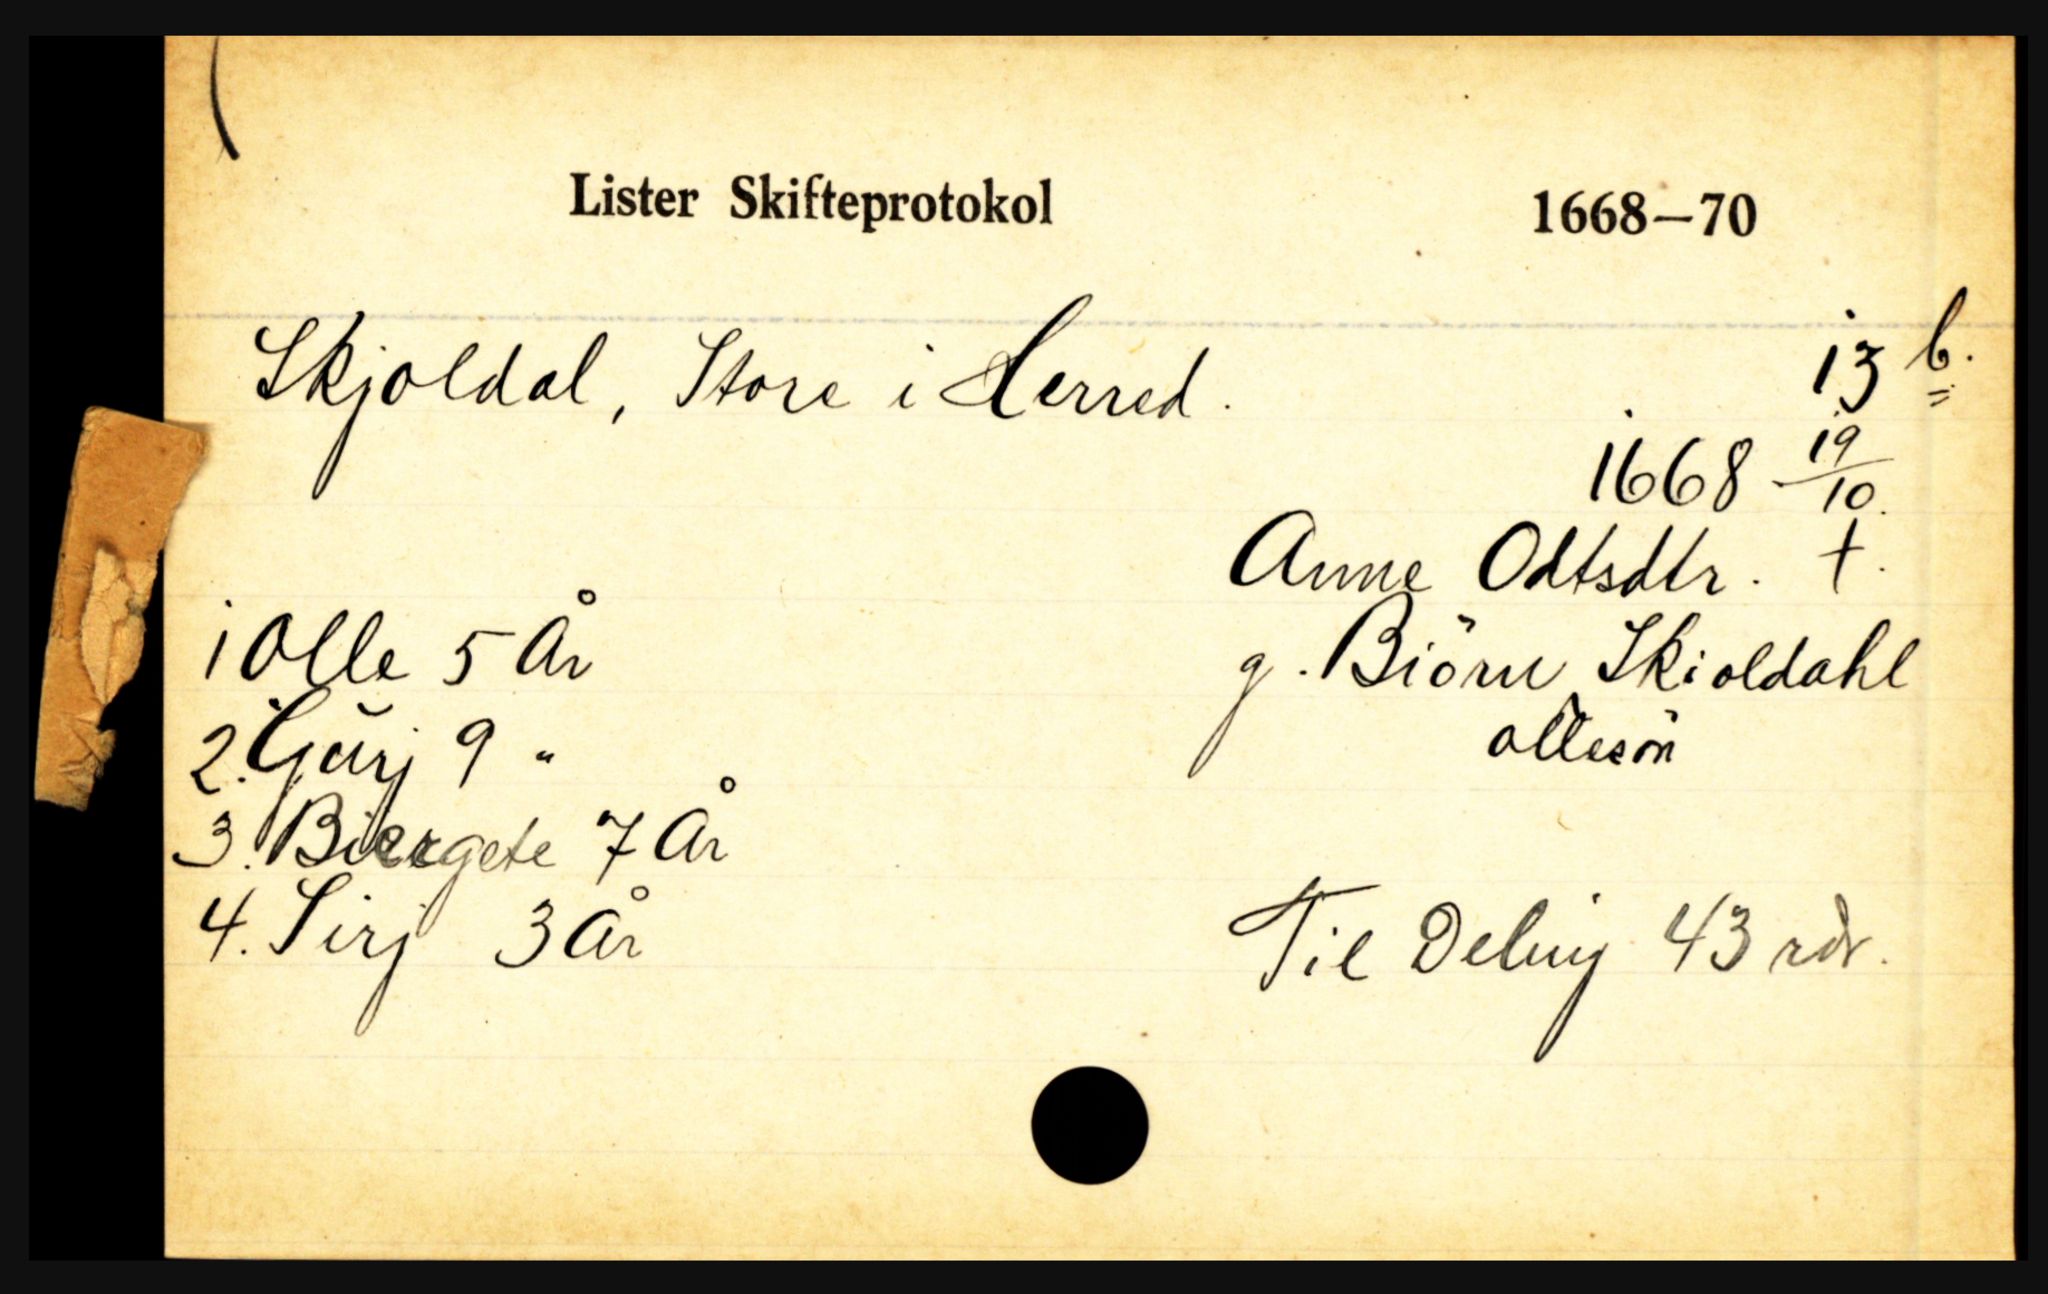 Lister Skifteprotokol 1668—70
Skjoldal, Store i Herred. 13 b.
1668 19/10.
Anne Odtsdtr. †.
g. Biörn Skioldahl
ollesön
1 Olle 5 År
2. Gurj 9 "
3. Biergete 7 År
4. Sirj 3 År
Til Deling 43 rdr.